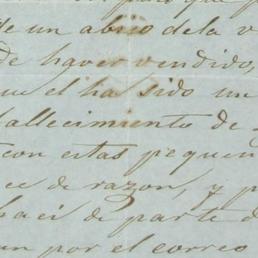 un abiso de la v
de haver vendido,
ue el ha sido un
fallecimiento de
con estas pequeñ
ce de razon, y p
haci de parte d
un por el correo